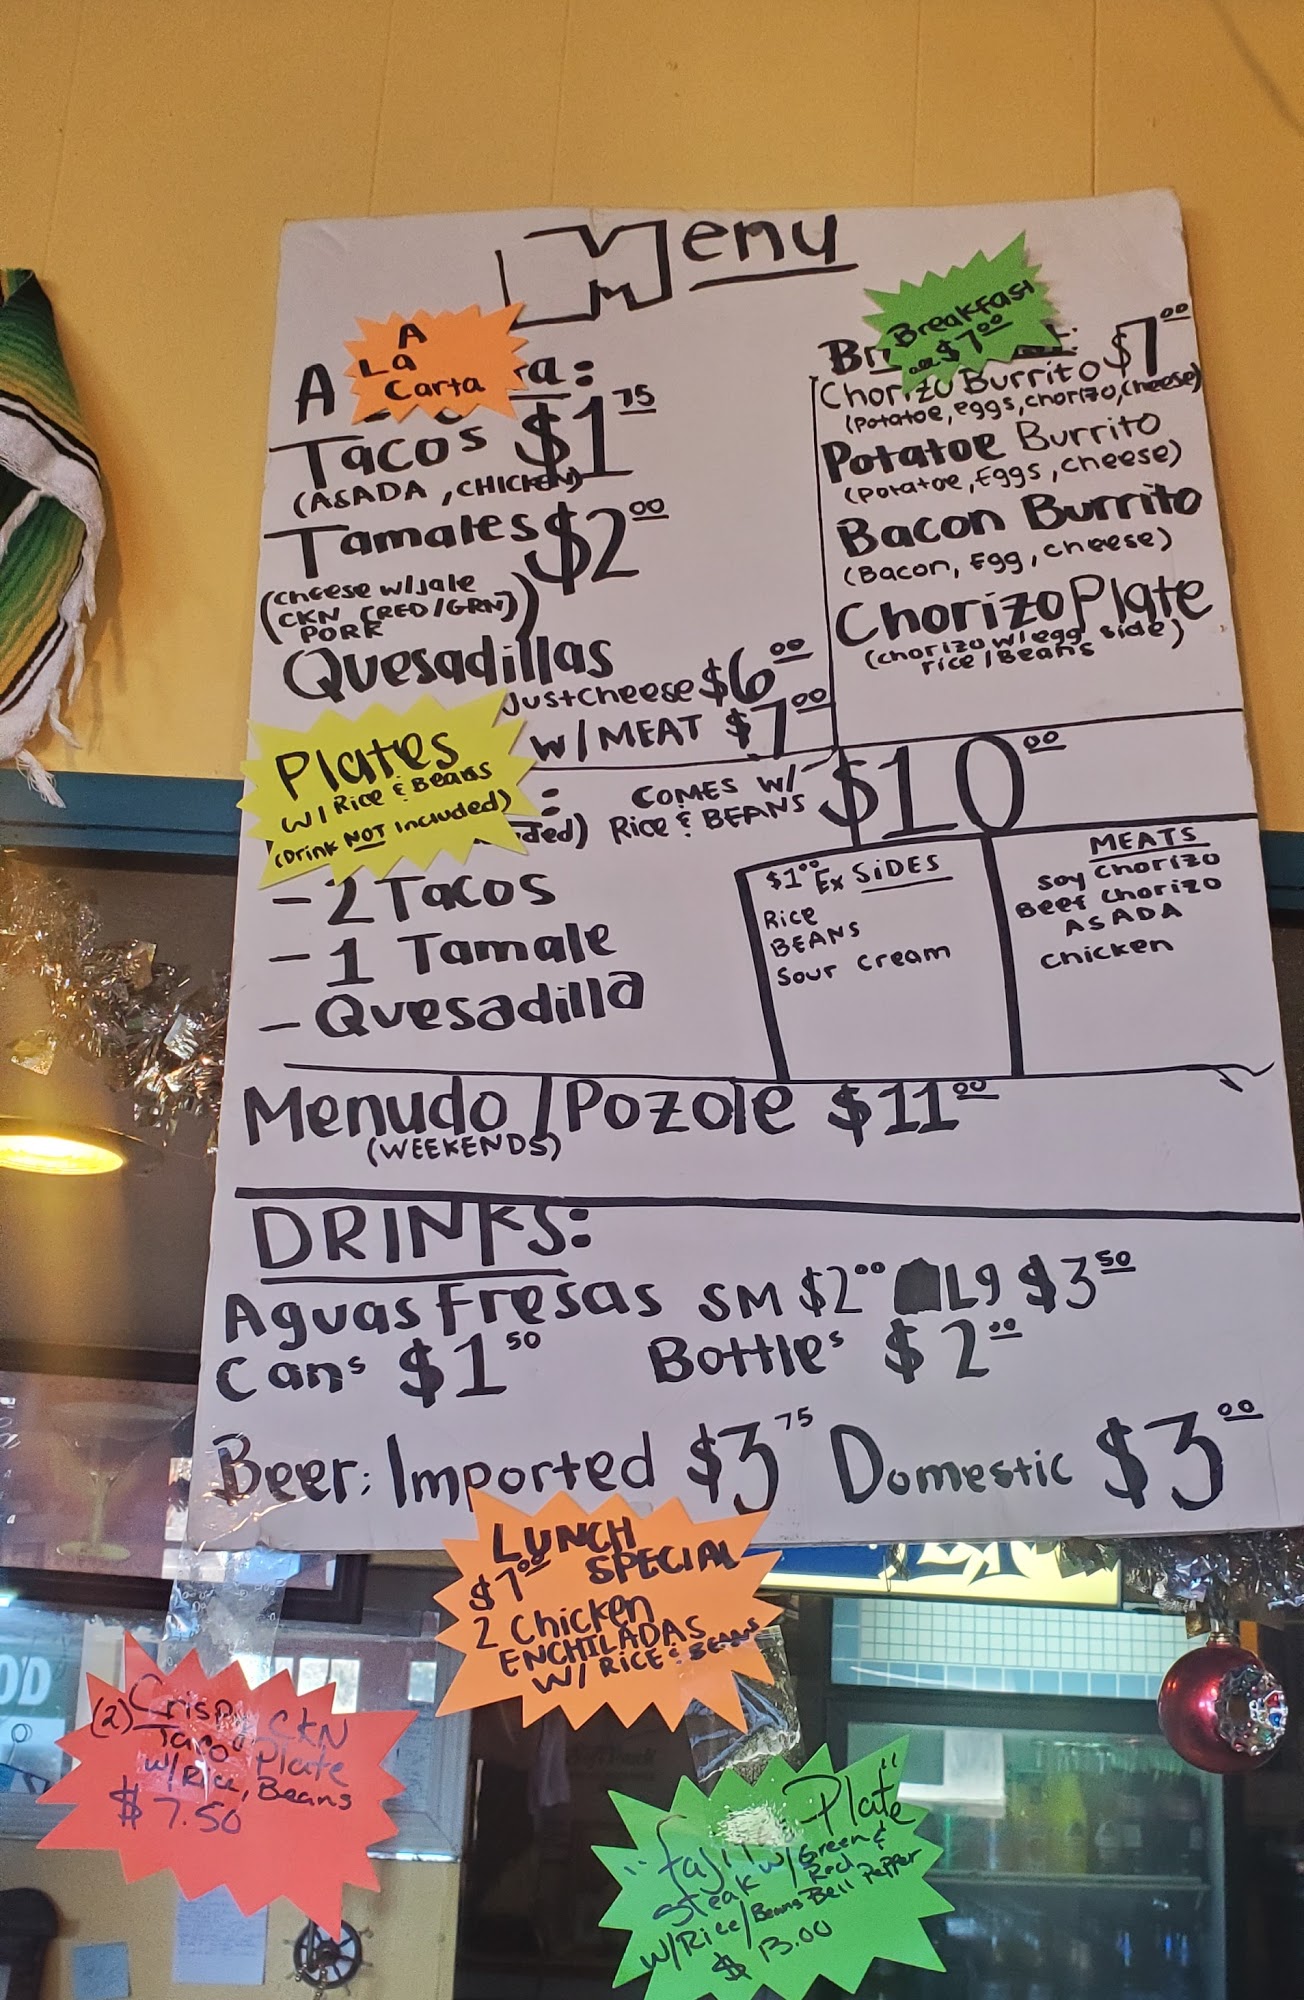 Menu
A La Carta
A ra:
Tacos $1.75
(ASADA, CHICKEN)
Tamales $2.00
(cheese w/jale
CKN (RED/GRN))
PORK
Quesadillas
Just cheese $6.00
w/MEAT $7.00
Breakfast
all $7.00
Br t: $7.00
Chorizo Burrito
(Potatoe, eggs, chorizo, cheese)
Potatoe Burrito
(Potatoe, Eggs, cheese)
Bacon Burrito
(Bacon, Egg, cheese)
Chorizo Plate
(chorizo w/egg side)
rice/Beans
Plates
w/ Rice & Beans
(Drink NOT Included)
: COMES W/ $10.00
ded) Rice & BEANS
- 2 Tacos
- 1 Tamale
- Quesadilla
$1.00 Ex SiDES
Rice
BEANS
Sour cream
MEATS
Soy Chorizo
Beef Chorizo
ASADA
chicken
Menudo/Pozole $11.00
(WEEKENDS)
DRINKS:
Aguas Fresas SM $2.00 Lg $3.50
Cans $1.50 Bottles $2.00
Beer: Imported $3.75 Domestic $3.00
LUNCH
$7.00 SPECIAL
2 Chicken
ENCHILADAS
W/ RICE & BEANS
(2) Crispy CKN
Taco Plate
w/Rice, Beans
$7.50
Plate"
steak w/Green &
Red
w/Rice/Beans Bell Pepper
$13.00
OD